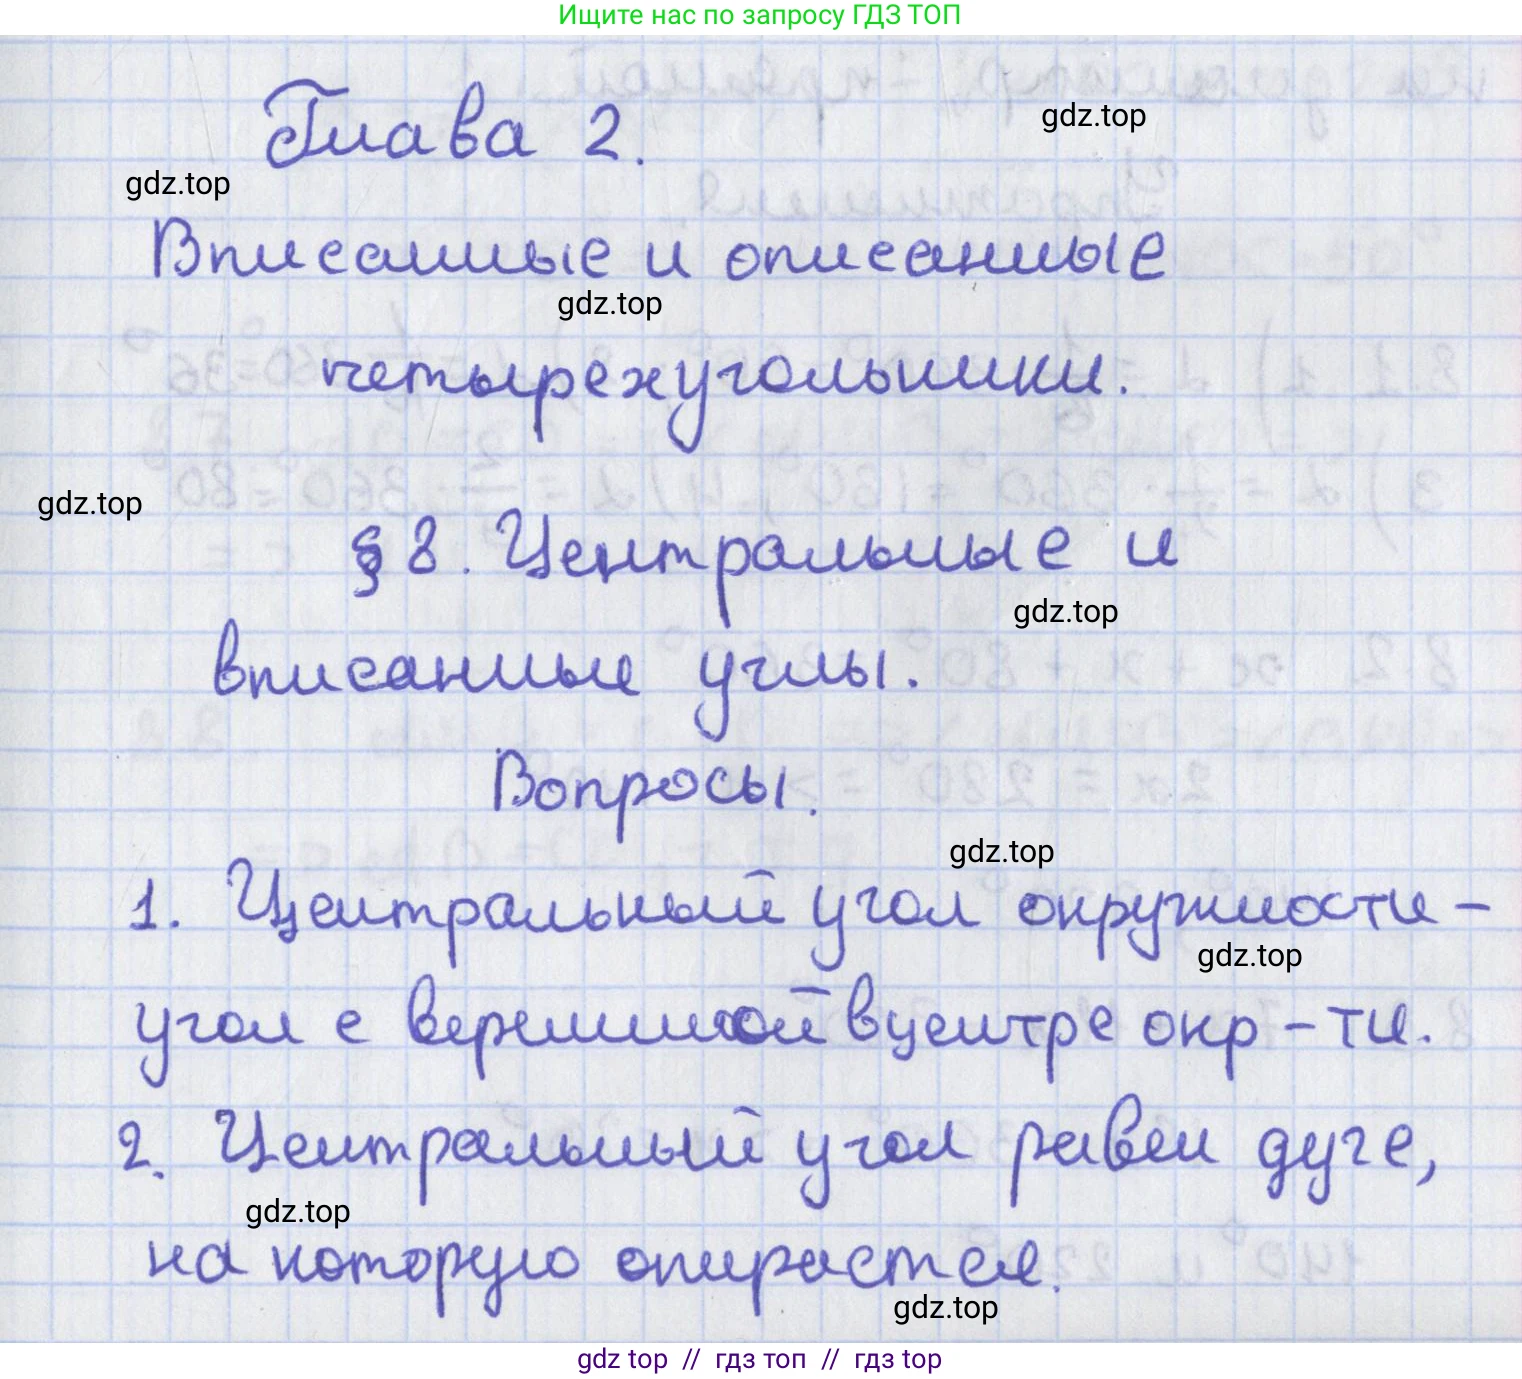 Ищите нас по запросу ГДЗ ТОП
Глава 2.
gdz.top
gdz.top
Вписанные и описанные
gdz.top
четырехугольники.
gdz.top
§ 8. Центральные и
gdz.top
вписанные углы.
Вопросы.
gdz.top
1. Центральный угол окружности –
gdz.top
угол с вершиной в центре окр-ти.
2. Центральный угол равен дуге,
gdz.top
на которую опирается.
gdz.top
gdz top // гдз топ // гдз top